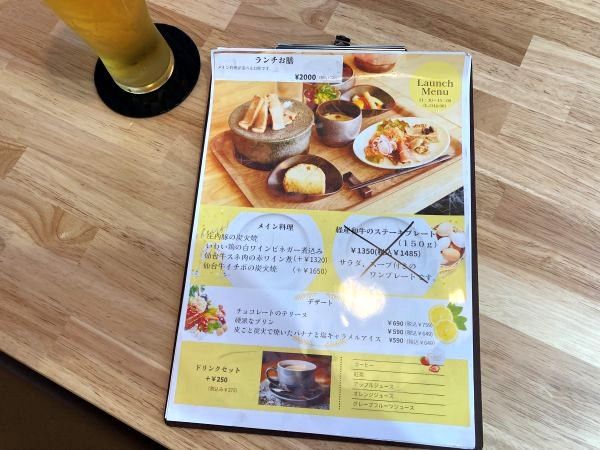 ランチお膳
メイン料理が選べるお膳です
¥2000
Launch
Menu
メイン料理
庄内豚の炭火焼
いわい鶏の白ワインビネガー煮込み
仙台牛スネ肉の赤ワイン煮(+¥1320)
仙台牛イチボの炭火焼 (+¥1650)
経産和牛のステーキプレート
(150g)
¥1350(税込¥1485)
サラダ、スープ付きの
ワンプレートです
デザート
チョコレートのテリーヌ ¥690 (税込¥759)
硬派なプリン ¥590 (税込¥649)
皮ごと炭火で焼いたバナナと塩キャラメルアイス ¥590 (税込¥649)
ドリンクセット
+¥250
(税込み¥275)
コーヒー
紅茶
アップルジュース
オレンジジュース
グレープフルーツジュース